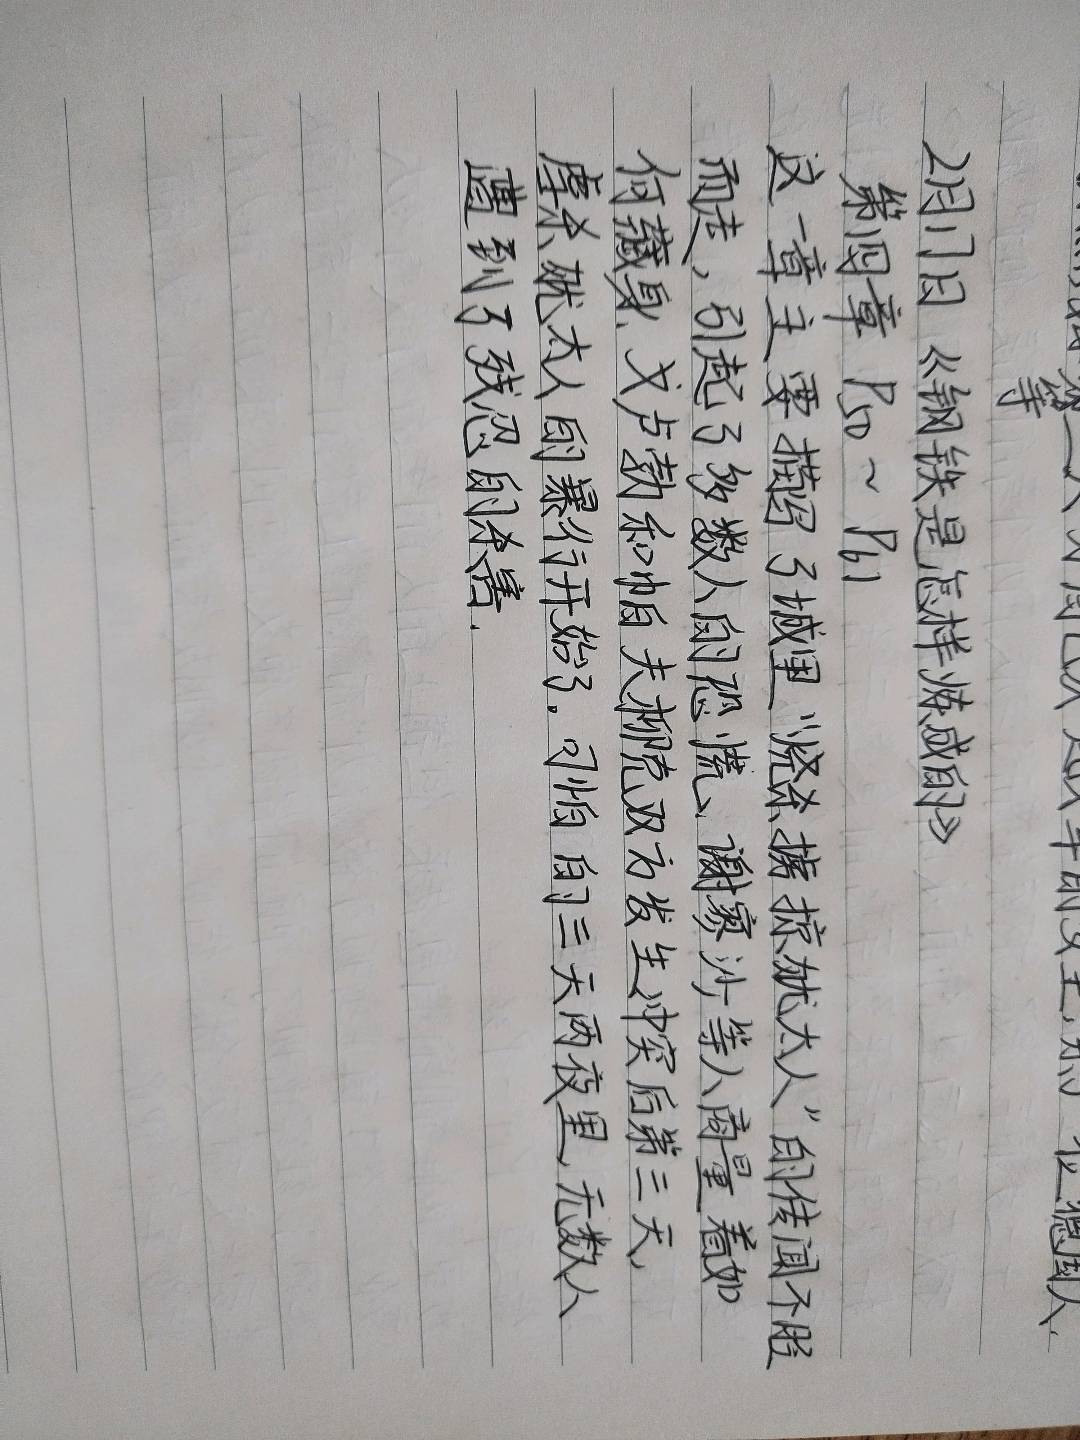 等
2月17日 《钢铁是怎样炼成的》
第四章 P50 ~ P61
这一章主要描写了城里“烧杀掳掠犹太人”的传闻不胫
而走，引起了多数人的恐慌、谢寥沙等人商量着如
何藏身、戈卢勃和帕夫柳克双方发生冲突后第三天，
虐杀犹太人的暴行开始了。可怕的三天两夜里，无数人
遭到了残忍的杀害.